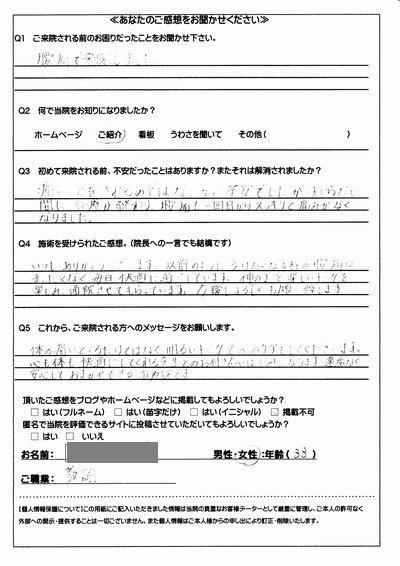 ≪あなたのご感想をお聞かせください≫
Q1 ご来院される前のお困りだったことをお聞かせ下さい。
腰痛で
Q2 何で当院をお知りになりましたか?
ホームページ ご紹介 看板 うわさを聞いて その他( )
Q3 初めて来院される前、不安だったことはありますか?またそれは解消されましたか?
痛いことをされるのではないか、不安でしたが
間に 終わり、腰痛も一回目からスッキリと痛みがなく
なりました。
Q4 施術を受けられたご感想。(院長への一言でも結構です)
いつもありがとうございます。以前の
まったくなく毎日快適に過ごしています。 楽しいトークを
楽しみに通院させてもらっています。今後とも宜しくお願い致します
Q5 これから、ご来院される方へのメッセージをお願いします。
体の痛いところだけではなく明るいトークで
心も体も快適にしてくれる
安心しておまかせできる
頂いたご感想をブログやホームページなどに掲載してもよろしいでしょうか?
□はい(フルネーム) □はい(苗字だけ) □はい(イニシャル) ☑掲載不可
匿名で当院を評価できるサイトに投稿させていただいてもよろしいでしょうか?
□はい □いいえ
お名前: 男性・女性:年齢(33)
ご職業:教諭
【個人情報保護について】この用紙にご記入いただきました情報は当院の貴重なお客様データーとして厳重に管理し、ご本人の許可なく
外部への開示・提供することは一切ございません。また個人情報はご本人様からの申し出により訂正・削除いたします。